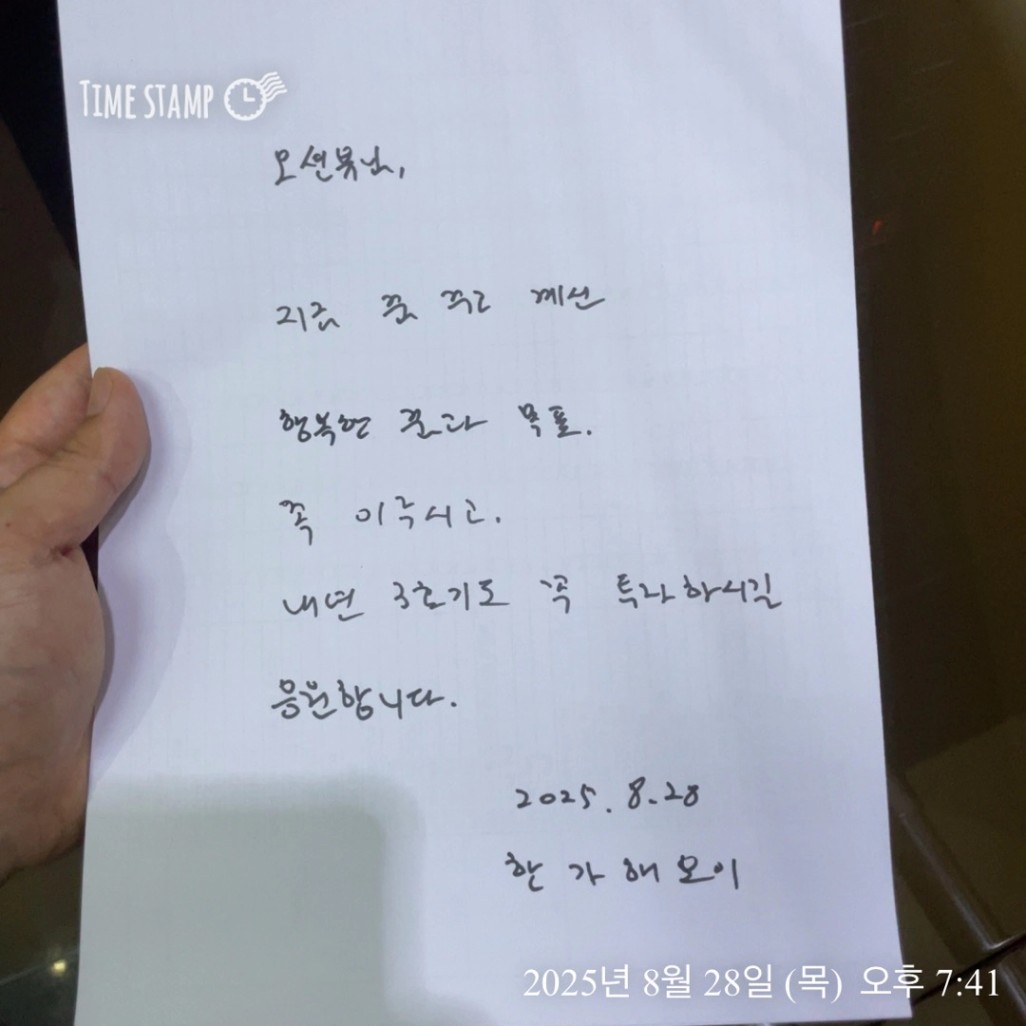 TIME STAMP
오션뷰님,
지금 꿈 꾸고 계신
행복한 꿈과 목표.
꼭 이루시고.
내년 3호기도 꼭 투자하시길
응원합니다.
2025. 8.28
한가해보이
2025년 8월 28일 (목) 오후 7:41